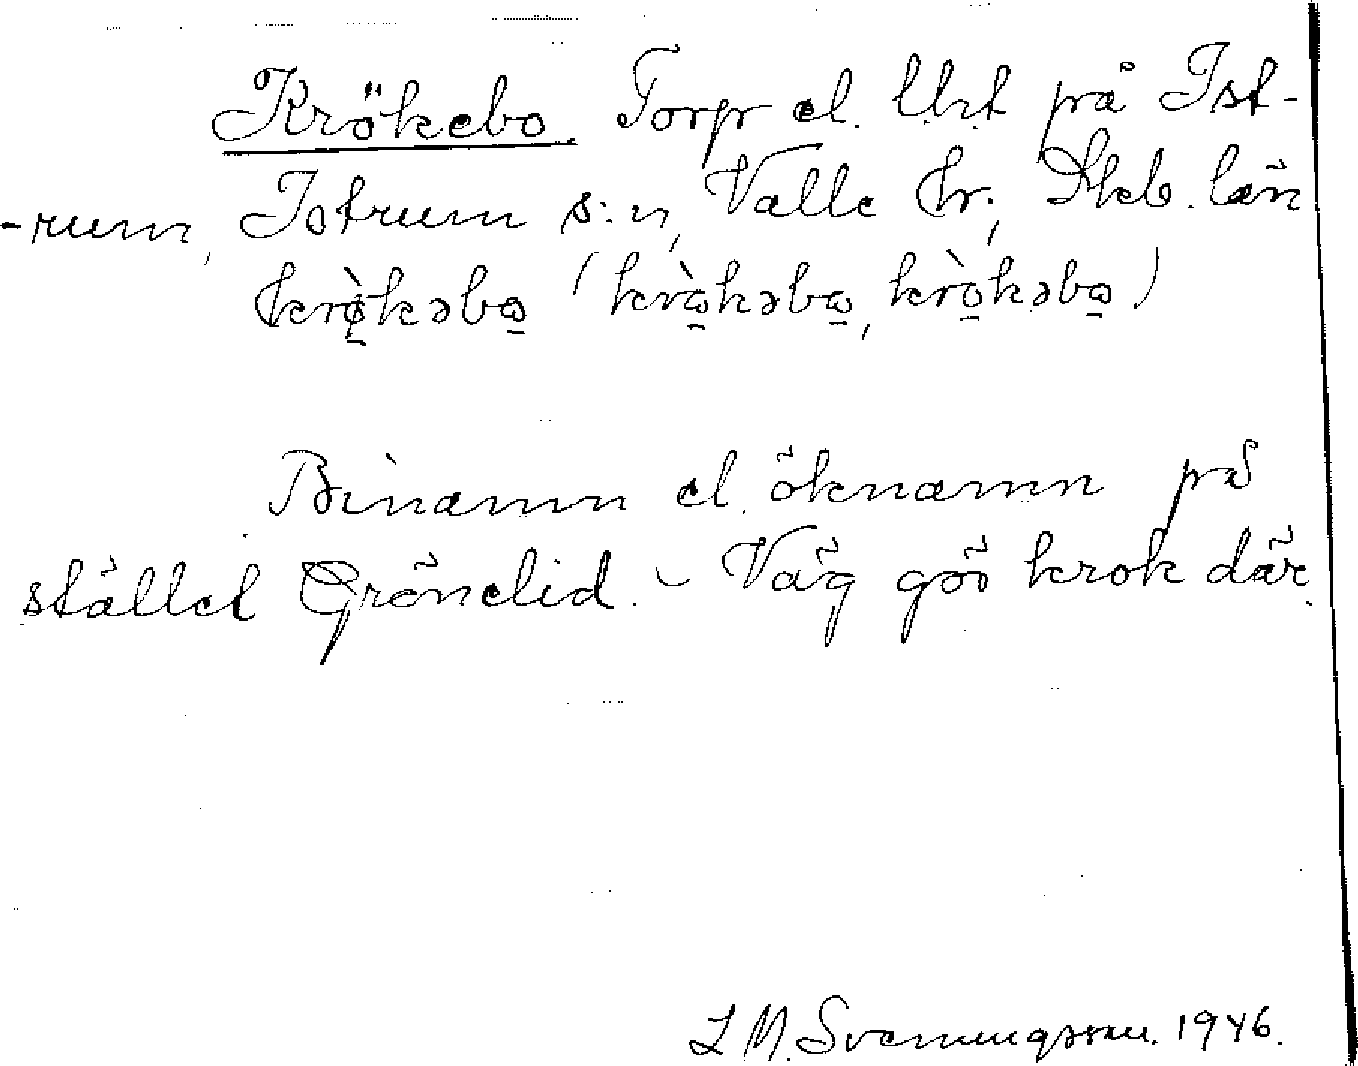 Krökebo. Torp el. lht på Ist-
-rum, Istrum s:n, Valle hr., Skb. län
krö̀kəbo (krò̱kəbo̱, krò̱kəbo̱)
Binamn el. öknamn på
stället Grönelid. - Väg gör krok där.
L M. Svenungsson. 1946.